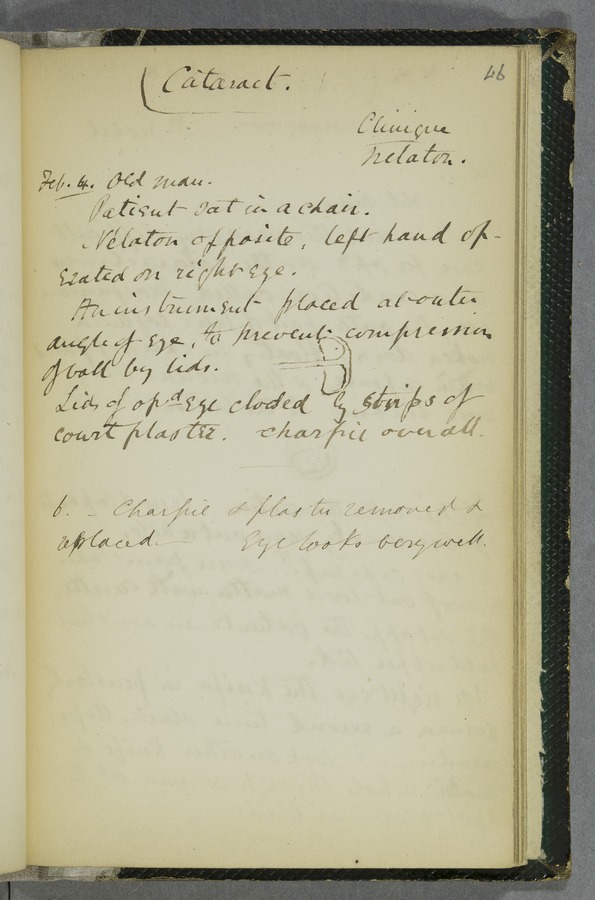 46
Cataract.
Clinique
Nelaton.
Feb. 4. Old man.
Patient sat in a chair.
Nélaton opposite, left hand op-
erated on right eye.
An instrument placed at outer
angle of eye, to prevent compression
of ball by lids.
Lids of opd eye closed by strips of
court plaster. Charpie over all.
6. - Charpie & plaster removed &
replaced Eye looks very well.